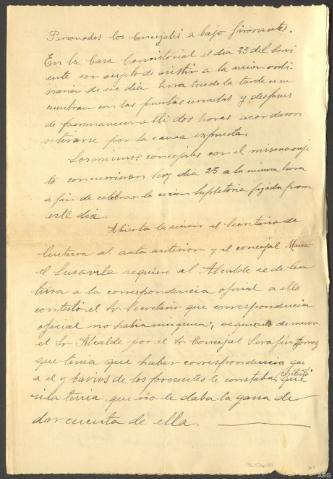 Personados los Concejales a bajo firmantes.
En la Casa Consistorial el dia 23 del corri
ente con objeto de asistir a la sesion ordi
naria de ese dia hora tres de la tarde se en
cuentran con las puertas cerradas y despues
de permanecer allí dos horas acordaron
retirarse por la causa expuesta.
Los mismos concejales con el mismo obje
to concurrieron hoy dia 25 a la misma hora
a fin de celebrar la sesion supletoria fijada para
este dia.
Abierta la sesion el Secretario da
lectura al acta anterior y el concejal Manu
el requiere al Alcalde se de lec
tura a la correspondencia oficial a ello
contestó el Sr. Secretario que correspondencia
oficial no habia ninguna; requerido de nuevo
el Sr Alcalde por el Sr Concejal Serafin
que tenia que haber correspondencia que
a el y barios de los presentes le constaba, contestó que
si la tenia que no le daba la gana de
dar cuenta de ella.